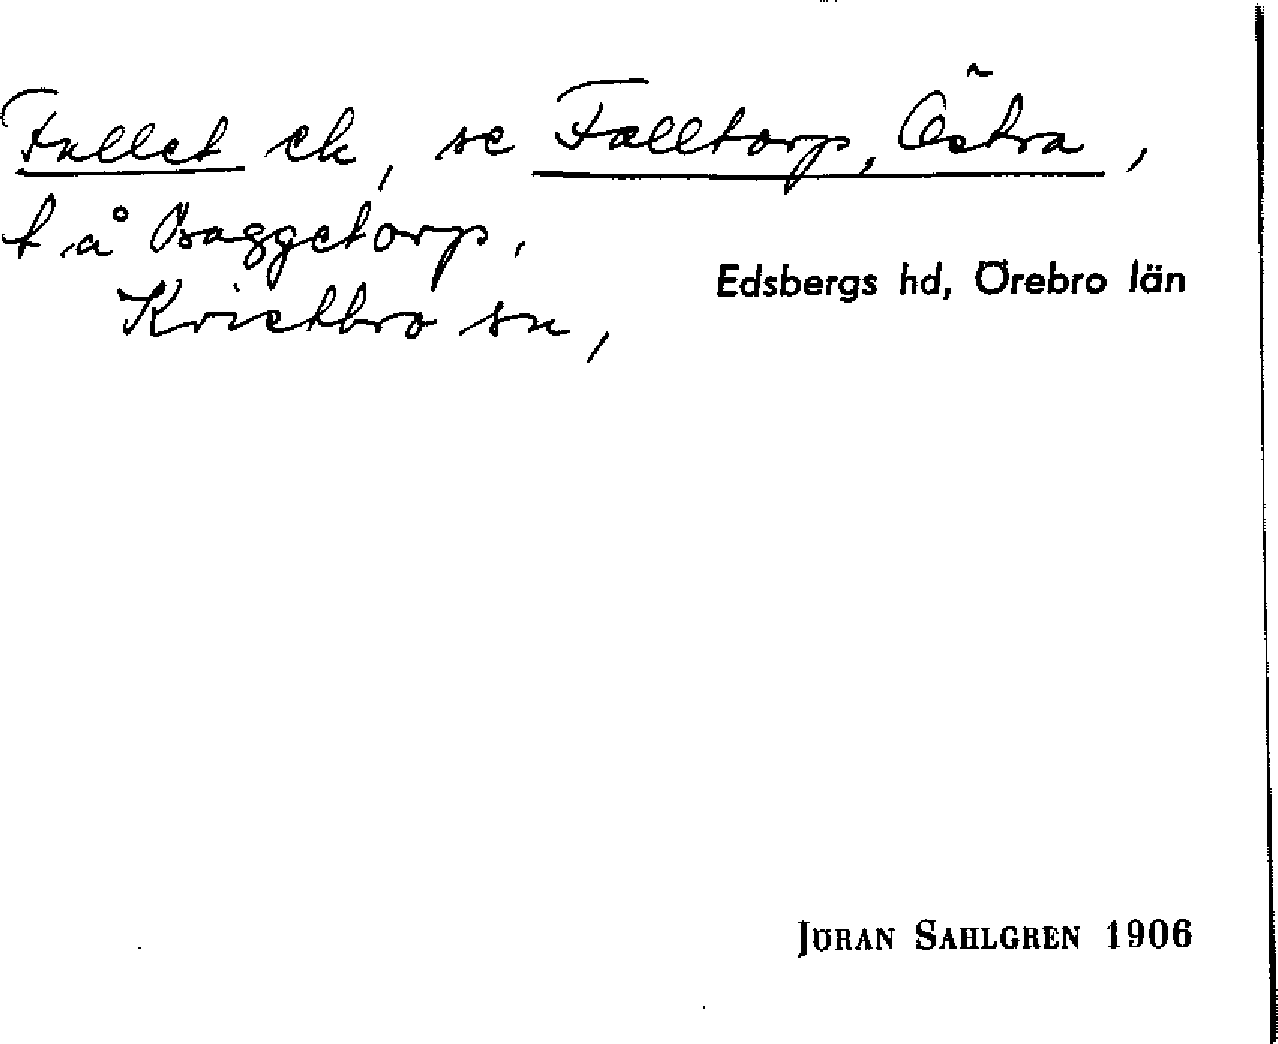 Fallet ek, se Falltorp, Östra,
t å Baggetorp,
Kvistbro sn,
Edsbergs hd, Örebro län
JÖRAN SAHLGREN 1906